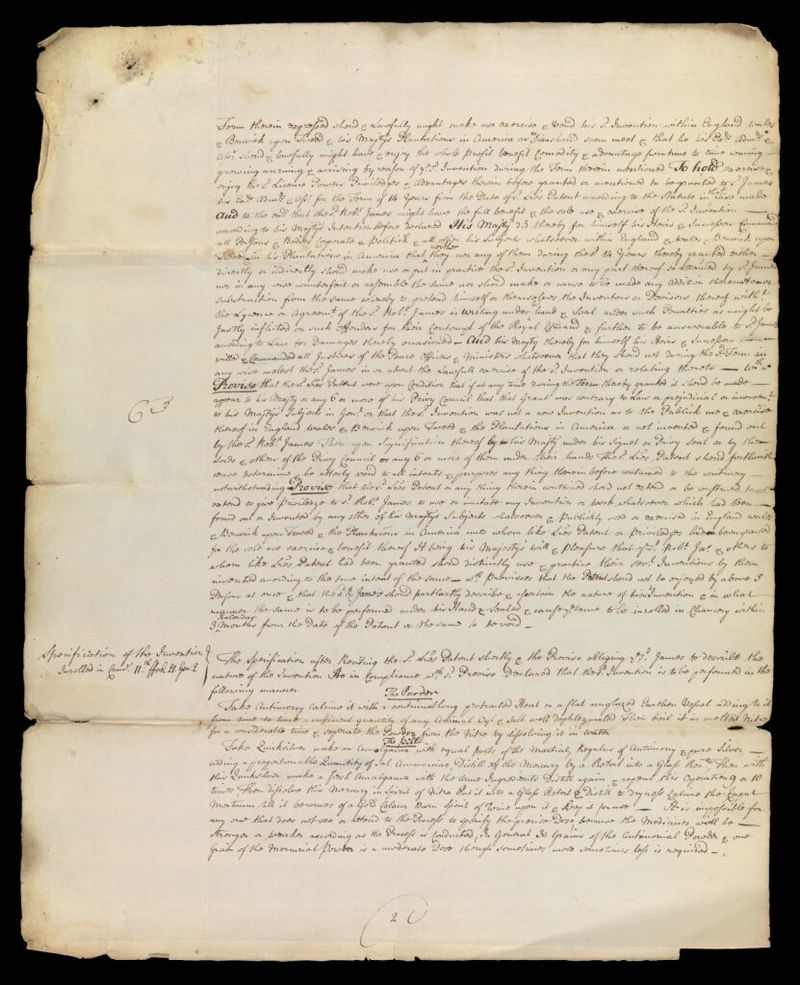 Term therein expressed should & Lawfully might make use exercise & Vend his sd. Invention within England Wales
& Berwick upon Tweed & his Majtys Plantations in America as should seem meet & that he his Exrs. Admrs. &
Ass. should & Lawfully might have & enjoy the whole profit benefit Comodity & advantage from time to time coming
growing accruing & arising by reason of ye sd. Invention during the Term therein mentioned To hold exercise &
enjoy the sd. Licence Powers Priviledges & Advantages therein before granted or mentioned to be granted to sd. James
his Exrs. Admrs. & Asss. for the Term of 14 Years from the Date of sd. Lres Patent according to the Statute in that case made
And to the end that the sd. Robt. James might have the full benefit & the sole use & exercise of the sd. Invention
according to his Majtys Intention before declared His Majty did thereby for himself his Heirs & Successors Command
all Persons & Bodies Corporate & Politick & all other his Subjects whatsoever within England & Wales & Berwick upon
Tweed in his Plantations in America that neither they nor any of them during the sd. 14 Years thereby granted either
directly or indirectly should make use or put in practice the sd. Invention or any part thereof so attained by sd. James
nor in any wise counterfeit or resemble the same nor should make or cause to be made any Addition thereunto or
substraction from the same whereby to pretend himself or themselves the Inventors or Devisors thereof witht.
the Lycence or Agreemt. of the sd. Robt. James in Writing under hand & Seal under such Penalties as might be
Justly inflicted on such Offenders for their Contempt of the Royal Comand & further to be answerable to sd. James
according to Law for Damages thereby occasioned And his Majty thereby for himself his Heirs & Successors
willed & Commanded all Justices of the Peace Officers & Ministers whatsoever that they should not during the sd. Term in
any wise molest the sd. James in or about the Lawfull exercise of the sd. Invention or relating thereto With a
Proviso that the sd. Lres Patent were upon Condition that if at any time during the Term thereby granted it should be made
appear to his Majty or any 6 or more of his Privy Council that that Grant was contrary to Law or prejudicial or inconvent.
to his Majtys Subjects in Genl. or that the sd. Invention was not a new Invention as to the Publick use & exercise
thereof in England Wales & Berwick upon Tweed & the Plantations in America or not invented & found out
by the sd. Robt. James Then upon Signification thereof by his Majty under his Signet or Privy Seal or by the
Lords & others of the Privy Council or any 6 or more of them under their hands The sd. Lres Patent should forthwith
cease determine & be utterly void to all intents & purposes any thing therein before contained to the contrary
notwithstanding Proviso that the sd. Lres Patent or any thing therein contained should not extend or be construed to
extend to give priviledge to sd. Robt. James to use or imitate any Invention or work whatsoever which had been
found out or Invented by any other of his Majtys Subjects whatsoever & Publickly used or exercised in England Wales
& Berwick upon Tweed & the Plantations in America unto whom like Lres Patent or Priviledges had been granted
for the sole use exercise & benefit thereof It being his Majestys will & Pleasure that ye sd. Robt. Jas. & others to
whom like Lres Patent had been granted should distinctly use & practice their sevl. Inventions by them
invented according to the true intent of the same wth. Provisoes that the Patent should not be enjoyed by above 5
Persons at once & that the sd. R. James should particularly describe & ascertain the nature of his Invention & in what
manner the same is to be performed under his Hand & Seal & cause ye same to be inrolled in Chancery within
3 Kalendar Months from the Date of the Patent or the same to be void
63
Specification of the Invention
Inrolled in Canc. 11th Feb. 21 Geo: 2
The Specification after Reciting the sd. Lres Patent shortly & the Proviso obliging ye sd. James to describe the
nature of the Invention He in Compliance wth. sd. Proviso Declared that the sd. Invention is to be performed in the
following manner
The Powder
Take Antimony Calcine it with a continual long protracted Heat in a flat unglazed Earthen Vessel adding to it
from time to time a sufficient quantity of any Animal Oyl & Salt well dephlegmated Then boil it in melted Nitre
for a considerable time & seperate the Powder from the Nitre by dissolving it in Water
The Pill
Take Quicksilver make an Amalgama with equal parts of the Martial Regulus of Antimony & pure Silver
adding a proportionable Quantity of Sal Ammoniac Distill off the Mercury by a Retort into a Glass Recr. Then with
this Quicksilver make a fresh Amalgama with the same Ingredients Distill again & repeat this Operation 9 or 10
times Then dissolve this Mercury in Spirit of Nitre Put it into a Glass Retort & Distill to dryness Calcine the Caput
Mortuum till it becomes of a Gold Colour Burn Spirit of Wine upon it & Keep it for use It is impossible for
any one that does not see or attend to the Process to specify the precise Dose because the Medicines will be
Stronger or Weaker according as the Process is conducted, In General 30 Grains of the Antimonial Powder & one
Grain of the Mercurial Powder is a moderate Dose though sometimes more sometimes less is required
2